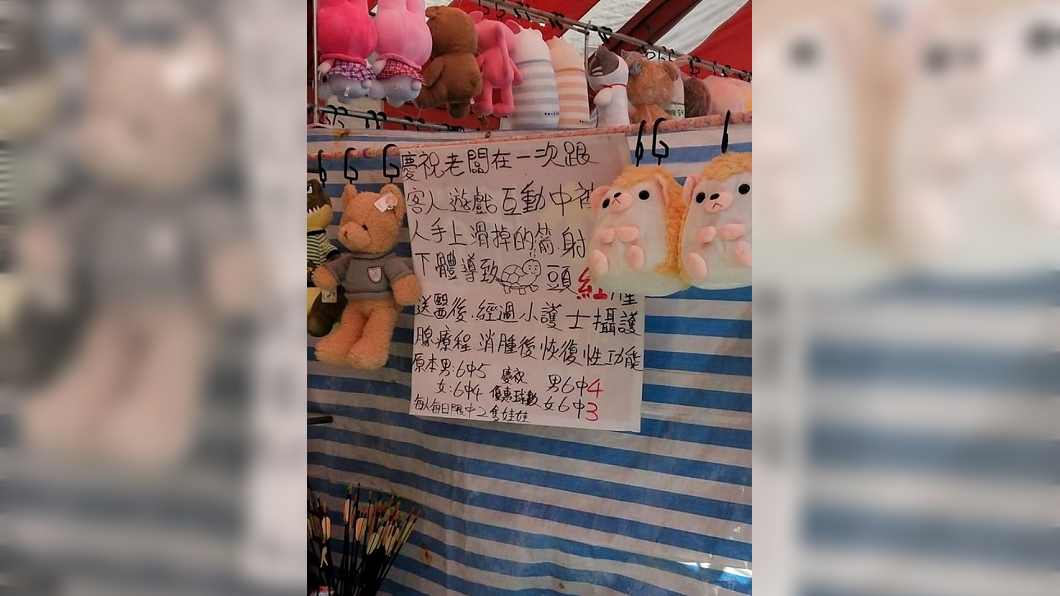 慶祝老闆在一次跟
客人遊戲互動中被
人手上滑掉的箭.射
下體導致頭紅腫
送醫後.經過小護士攝護
腺療程.消腫後恢復性功能
原本男:6中5 慶祝 男6中4
女:6中4 優惠球數 女6中3
每人每日限中2隻娃娃